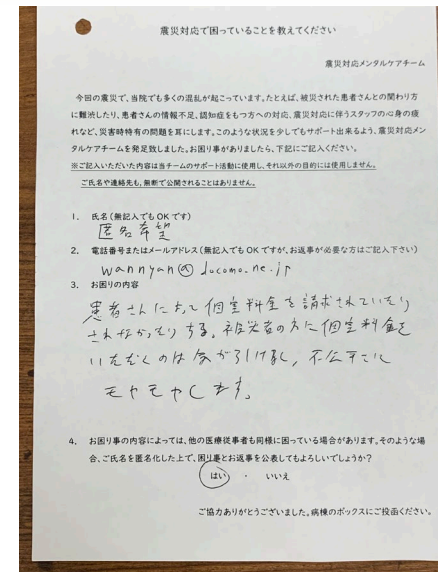 震災対応で困っていることを教えてください
震災対応メンタルケアチーム
今回の震災で、当院でも多くの混乱が起こっています。たとえば、被災された患者さんとの関わり方
に難渋したり、患者さんの情報不足、認知症をもつ方への対応、震災対応に伴うスタッフの心身の疲
れなど、災害時特有の問題を耳にします。このような状況を少しでもサポート出来るよう、震災対応メン
タルケアチームを発足致しました。お困り事がありましたら、下記にご記入ください。
※ご記入いただいた内容は当チームのサポート活動に使用し、それ以外の目的には使用しません。
ご氏名や連絡先も、無断で公開されることはありません。
1. 氏名(無記入でもOKです)
匿名希望
2. 電話番号またはメールアドレス(無記入でもOKですが、お返事が必要な方はご記入下さい)
wannyan@docomo.ne.jp
3. お困りの内容
患者さんによって個室料金を請求されていたり
されなかったりする。被災者の方に個室料金を
いただくのは気が引けるし、不公平さに
モヤモヤします。
4. お困り事の内容によっては、他の医療従事者も同様に困っている場合があります。そのような場
合、ご氏名を匿名化した上で、困り事とお返事を公表してもよろしいでしょうか?
はい ・ いいえ
ご協力ありがとうございました。病棟のボックスにご投函ください。